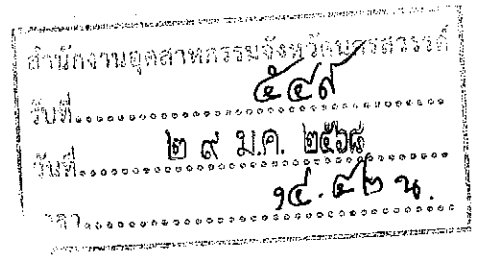 สำนักงานอุตสาหกรรมจังหวัดนครสวรรค์
รับที่
วันที่ ๒๙ ม.ค. ๒๕๖๘
เวลา น.